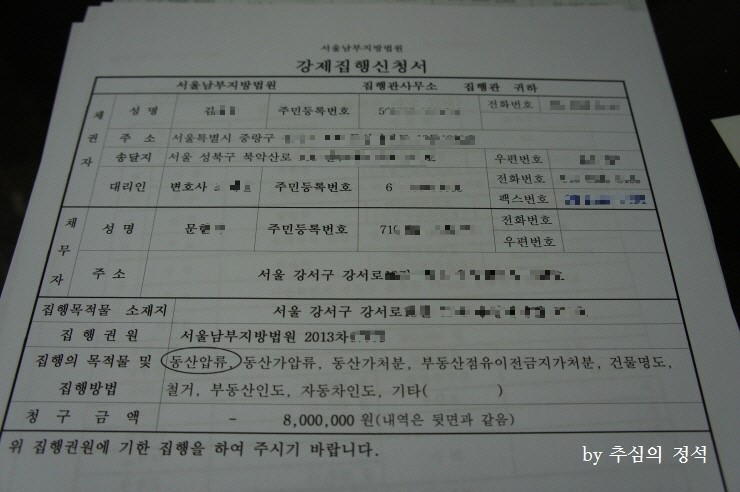 서울남부지방법원
강제집행신청서
서울남부지방법원 집행관사무소 집행관 귀하
채권자
성 명 김 주민등록번호 5 전화번호
주 소 서울특별시 중랑구
송달지 서울 성북구 북악산로 우편번호
대리인 변호사 주민등록번호 6 전화번호
팩스번호
채무자
성 명 문 주민등록번호 710 전화번호
우편번호
주 소 서울 강서구 강서로
집행목적물 소재지 서울 강서구 강서로
집 행 권 원 서울남부지방법원 2013차
집행의 목적물 및 동산압류, 동산가압류, 동산가처분, 부동산점유이전금지가처분, 건물명도,
집행방법 철거, 부동산인도, 자동차인도, 기타( )
청 구 금 액 - 8,000,000 원(내역은 뒷면과 같음)
위 집행권원에 기한 집행을 하여 주시기 바랍니다.
by 추심의 정석